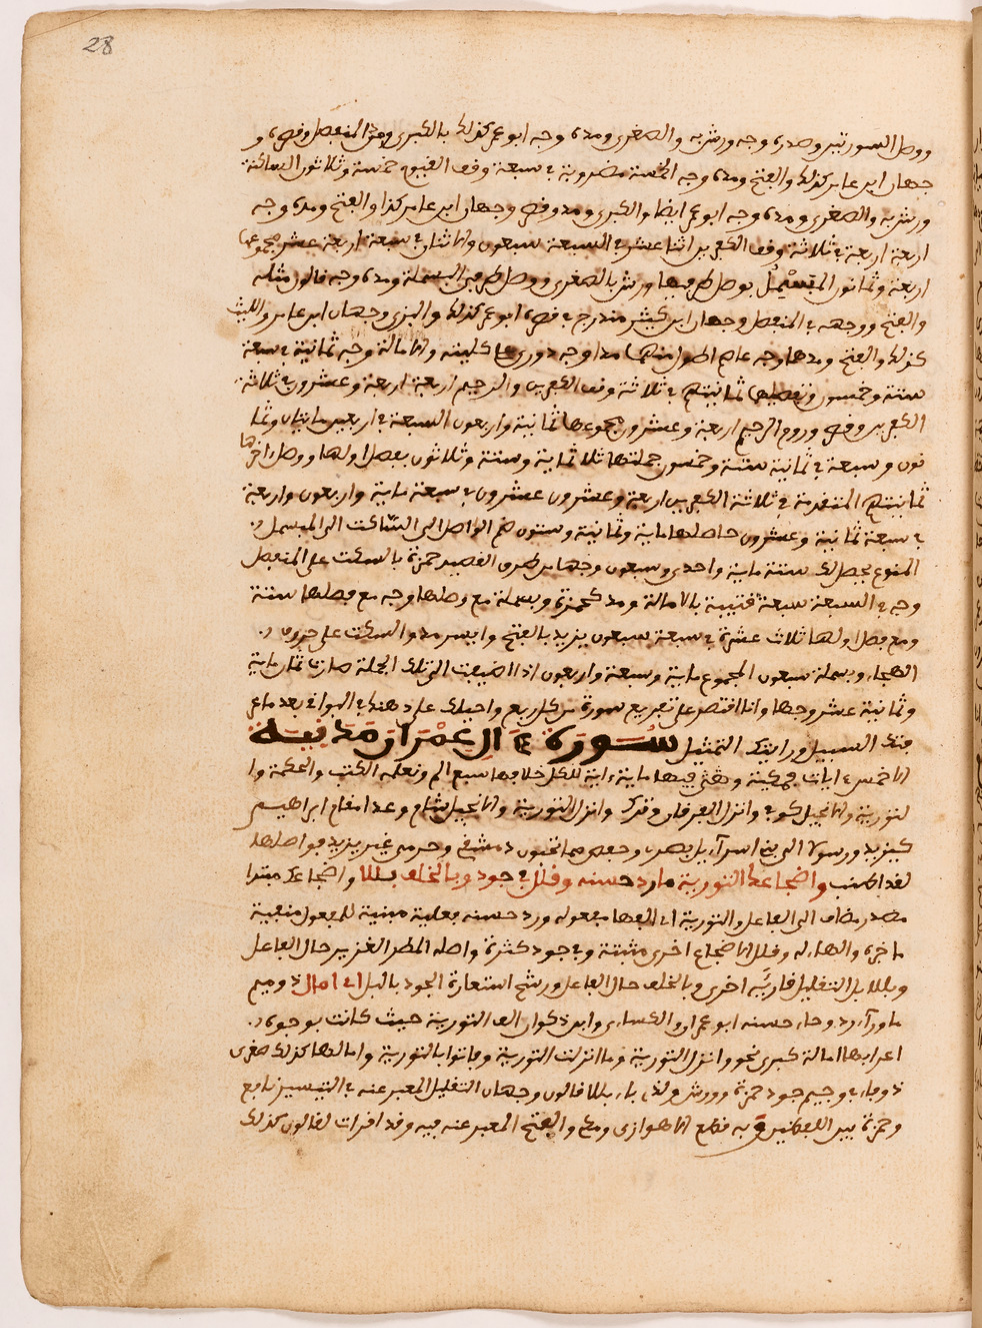 28
ووصل السورتين وصدره وجه ورش به والصغرى ومده وجه ابو عمر كذلك بالكبرى ومد المنفصل وقصره و
جهان ابن عامر كذلك والفتح ومده وجه الخمسة مضروبة في سبعة وقف القيوم خمسة وثلاثون الساكتة
ورش به والصغرى ومده وجه ابو عمر ايضا والكبرى ومد وقصر وجهان ابن عامر كذا والفتح ومده وجه
اربعة اربعة في ثلاثة وقف الكفرين اثنا عشر في السبعة سبعون واثنان في سبعة اربعة عشر مجموعها
اربعة وثمانون المبسمل بوصل طرفيها ورش بالصغرى ووصل طرفي البسملة ومده وجه قالون مثله
والفتح ووجهه في المنفصل وجهان ابن كثير مندرج في قصره ابو عمر كذلك والبزي وجهان ابن عامر والليث
كذلك والفتح ومدها وجه عاصم اطول منهما مدا وجه دوري على كليته والامالة وجه ثمانية في سبعة
ستة وخمسون وتفصيلها ثمانيتهم في ثلاثة وقف الكفرين والرحيم اربعة اربعة وعشرون في ثلاثة
الكفرين وقصر وروم الرحيم اربعة وعشرون مجموعها ثمانية واربعون السبعة في اربعين مايتان وثما
نون وسبعة في ثمانية ستة وخمسون جملتها ثلاثماية وستة وثلاثون بفصل اولها ووصل اخرها
ثمانيتهم المتقدمة في ثلاثة الكفرين اربعة وعشرون عشرون في سبعة ماية واربعون واربعة
في سبعة ثمانية وعشرون حاصلها ماية وثمانية وستون ضم الواصل الى الساكت الى المبسمل
المنوع يحصل لك ستة ماية واحدى وسبعون وجها من طرق القصيد حمزة بالسكت على المنفصل
وجه في السبعة سبعة قتيبة بالامالة ومد كحمزة وبسملة مع وصلها وجه مع فصلها ستة
ومع فصل اولها ثلاث عشرة في سبعة سبعون يزيد بالفتح وايسر مد والسكت على حروف
الهجاء وبسملة سبعون المجموع ماية وسبعة واربعون اذا اضيفت الى تلك الجملة صارت ثمان ماية
وثمانية عشر وجها وانا اقتصر على تفريع سورة من كل ربع واحيلك على ذهنك في البواقي بعد ما عر
فتك السبيل ورايتك التمثيل سورة ءال عمران مدنية
الا خمس ءايات فمكية وهي فيهما ماية ءاية للكل خلافها سبع الم ونعلمه الكتب والحكمة وا
لتورية والانجيل كوفي وانزل الفرقان وترك وانزل التورية والانجيل شام وعد مقام ابراهيم
كيزيد ورسولا الى بني اسراءيل بصرى وحمصي مما تحبون دمشقي وحرمي غير يزيد فواصلها
لقد اطنب واضجاعك التورية ما رد حسنه وقلل في جود وبالخلف بللا واضجاعك مبتدا
مصدر مضاف الى الفاعل والتورية اي الفها مفعوله ورد حسنه فعلية مبنية للمفعول منفية
ما خبره والهاء له وقلل الاضجاع اخرى مثبتة وفي جود كثرة واصله المطر الغزير حال الفاعل
وبللا بل التقليل قاربه اخرى وبالخلف حال الفاعل ورشح استعارة الجود بالبلل اي امال ذو ميم
ما وراء رد وحاء حسنه ابو عمرو والكساءي وابن ذكوان الف التورية حيث كانت بوجوه
اعرابها امالة كبرى نحو وانزل التورية وما انزلت التورية وفاتوا بالتورية وامالها كذلك صغرى
ذو فاء في وجيم جود حمزة وورش ولذي باء بللا قالون وجهان التقليل المعبر عنه في التيسير نافع
وحمزة بين اللفظين وبه قطع الاهوازي ومكي والفتح المعبر عنه فيه وقد اقرات لقالون كذلك